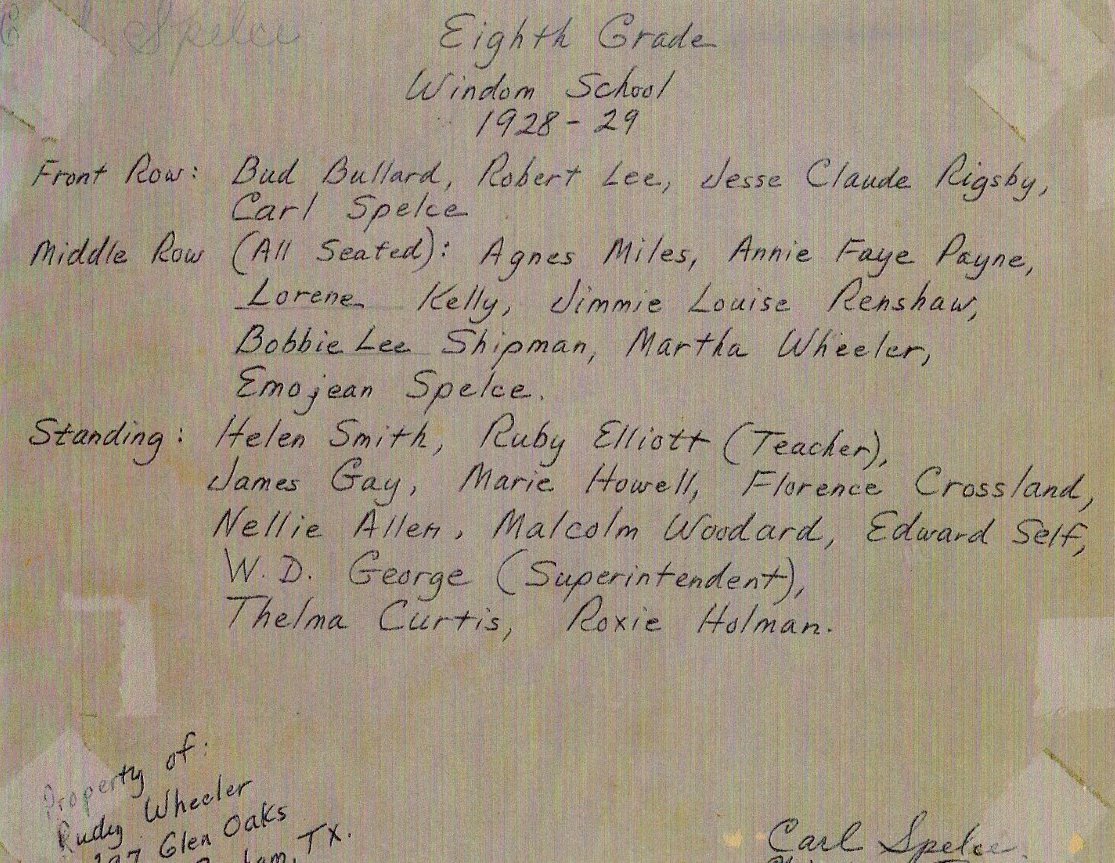 Spelce
Eighth Grade
Windom School
1928-29
Front Row: Bud Bullard, Robert Lee, Jesse Claude Rigsby,
Carl Spelce
Middle Row (All Seated): Agnes Miles, Annie Faye Payne,
Lorene Kelly, Jimmie Louise Renshaw,
Bobbie Lee Shipman, Martha Wheeler,
Emojean Spelce.
Standing: Helen Smith, Ruby Elliott (Teacher),
James Gay, Marie Howell, Florence Crossland,
Nellie Allen, Malcolm Woodard, Edward Self,
W.D. George (Superintendent),
Thelma Curtis, Roxie Holman.
Property of:
Rudy Wheeler
Glen Oaks
TX.
Carl Spelce